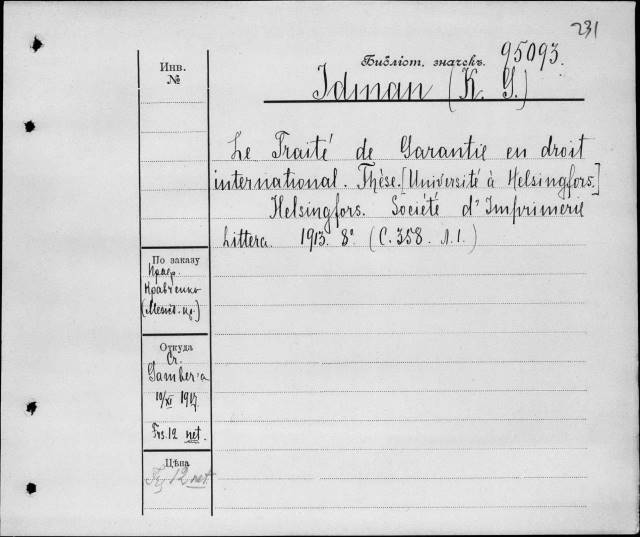 231
Библіот. значекъ. 95093.
Инв.
№
Idman (K. G.)
Le Traité de Garantie en droit
international. Thèse. [Université à Helsingfors.]
Helsingfors. Société d'Imprimerie
Littera 1913. 8° (C. 358. Л. 1.)
По заказу
Проф.
Кравченко
Откуда
Ст.
10/XI 1917.
Frs. 12 net.
Цѣна
12 net